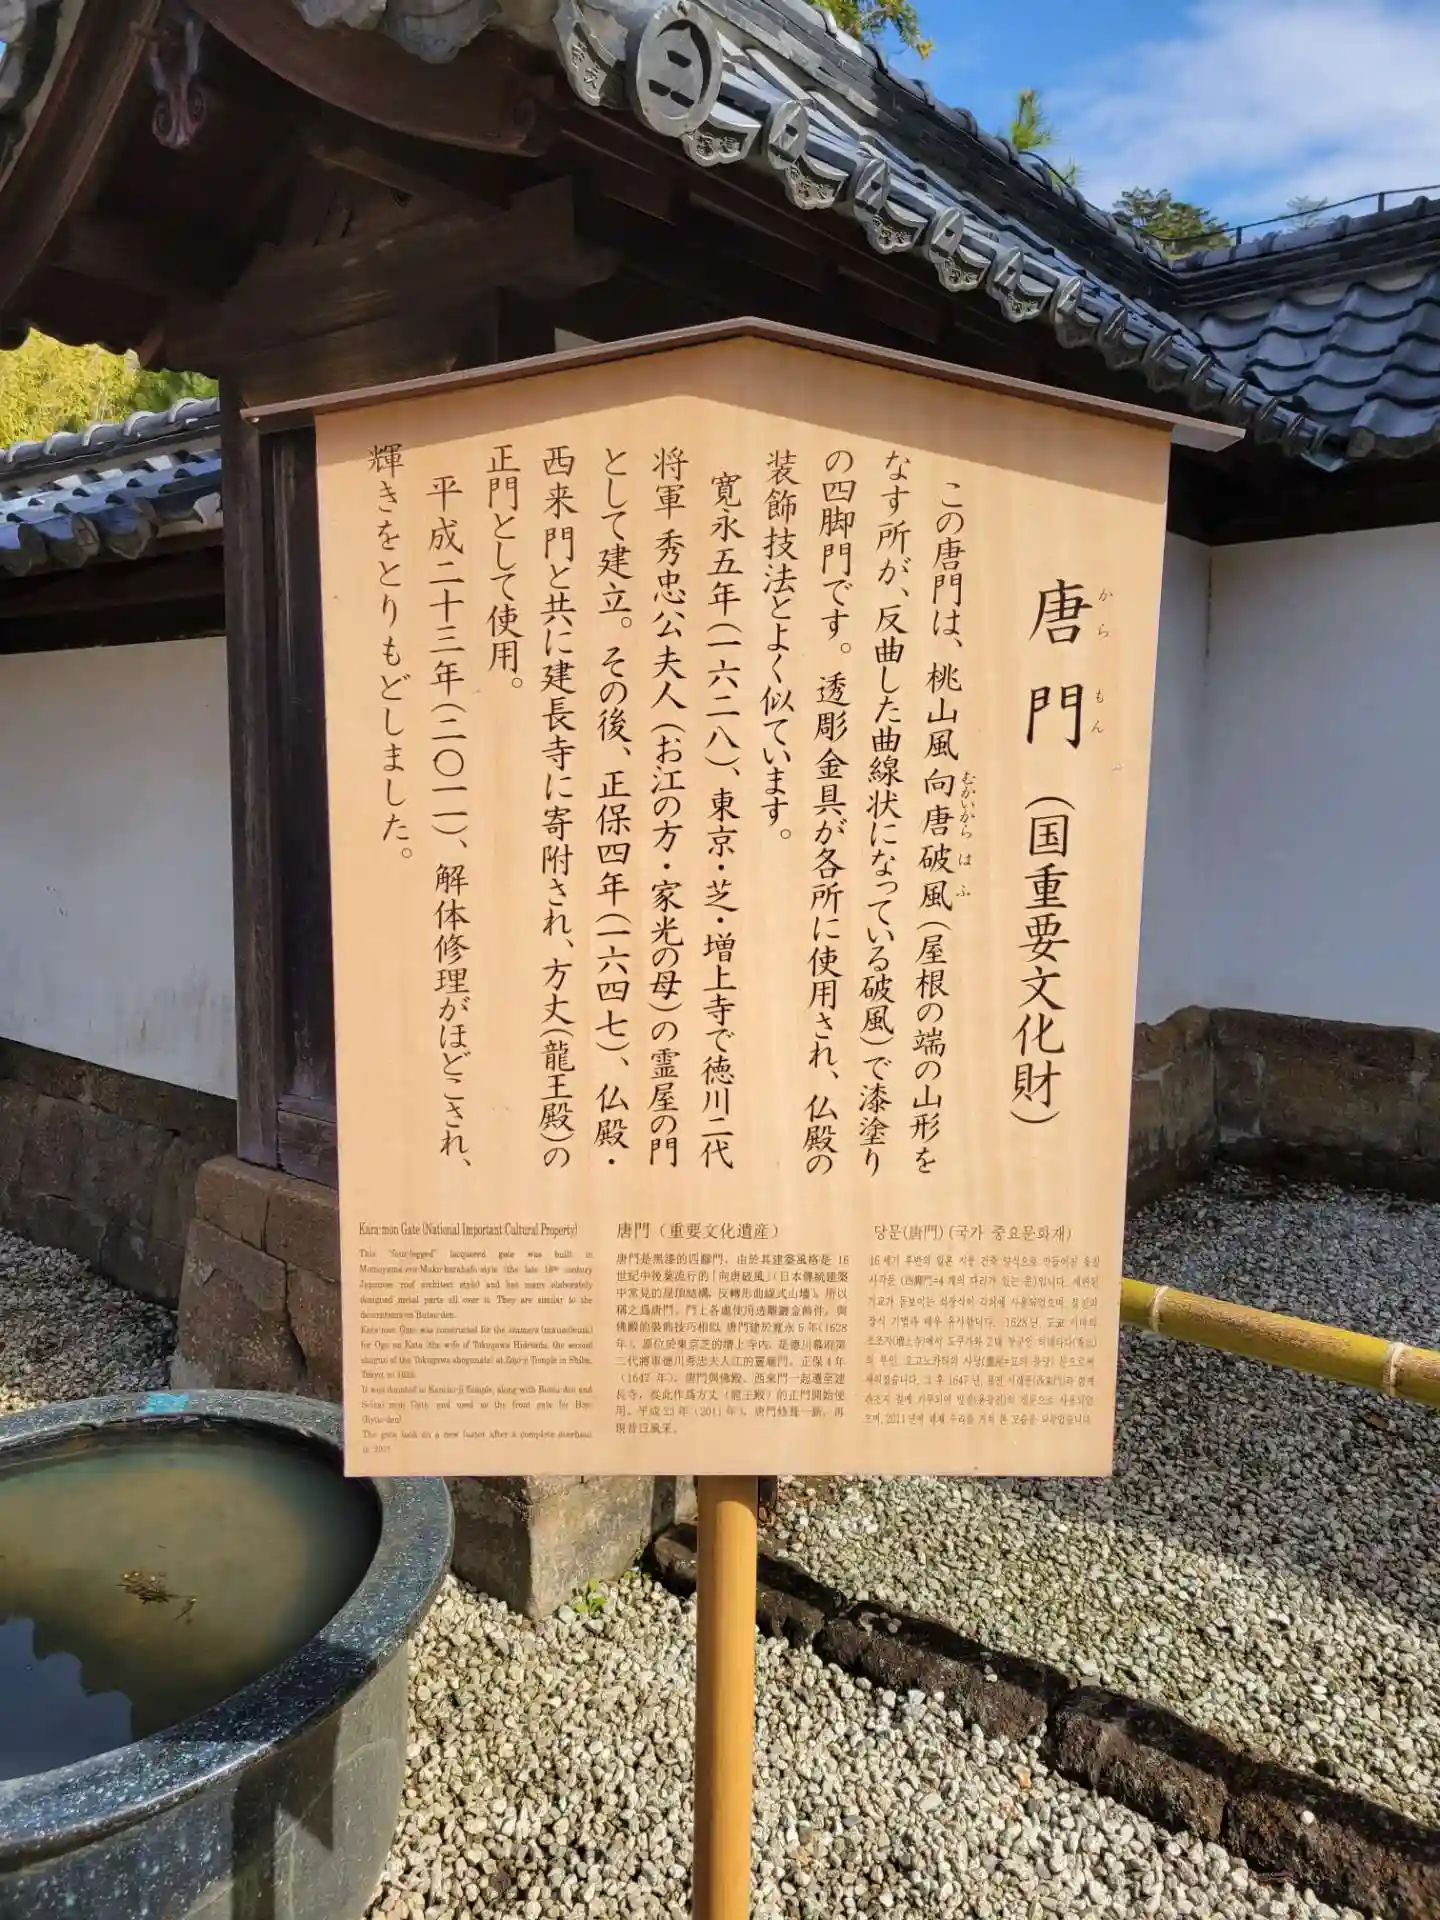 唐門（国重要文化財）
から もん
この唐門は、桃山風向唐破風（屋根の端の山形を
むかいから は ふ
なす所が、反曲した曲線状になっている破風）で漆塗り
の四脚門です。透彫金具が各所に使用され、仏殿の
装飾技法とよく似ています。
寛永五年（一六二八）、東京・芝・増上寺で徳川二代
将軍秀忠公夫人（お江の方・家光の母）の霊屋の門
として建立。その後、正保四年（一六四七）、仏殿・
西来門と共に建長寺に寄附され、方丈（龍王殿）の
正門として使用。
平成二十三年（二〇一一）、解体修理がほどこされ、
輝きをとりもどしました。
Kara-mon Gate (National Important Cultural Property)
This "four-legged" lacquered gate was built in
Momoyama-era Muko-karahafu style (the late 16th century
Japanese roof architect style) and has many elaborately
designed metal parts all over it. They are similar to the
decorations on Butsu-den.
Kara-mon Gate was constructed for the otamaya (mausoleum)
for Ogo no Kata (the wife of Tokugawa Hidetada, the second
shogun of the Tokugawa shogunate) at Zojo-ji Temple in Shiba,
Tokyo, in 1628.
It was donated to Kencho-ji Temple, along with Butsu-den and
Sairai-mon Gate, and used as the front gate for Hojo
(Ryuo-den)
The gate took on a new luster after a complete overhaul
in 2011.
唐門（重要文化遺産）
唐門是黑漆的四腳門，由於其建築風格是 16
世紀中後葉流行的「向唐破風」（日本傳統建築
中常見的屋頂結構，反轉形曲線式山墻），所以
稱之為唐門。門上各處使用透雕鍍金飾件，與
佛殿的裝飾技巧相似。唐門建於寬永 5 年（1628
年），原位於東京芝的增上寺內，是德川幕府第
二代將軍德川秀忠夫人江的靈廟門。正保 4 年
（1647 年），唐門與佛殿、西來門一起遷至建
長寺，從此作為方丈（龍王殿）的正門開始使
用。平成 23 年（2011 年），唐門修葺一新，再
現昔日風采。
당문(唐門) (국가 중요문화재)